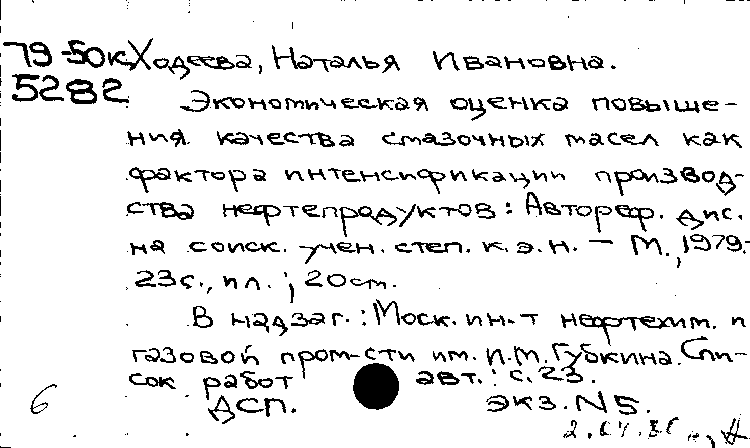 79-50к Ходеева, Наталья Ивановна.
5282
Экономическая оценка повыше-
ния качества смазочных масел как
фактора интенсификации производ-
ства нефтепродуктов: Автореф. дис.
на соиск. учен. степ. к.э.н. — М., 1979.-
23с., ил.; 20см.
В надзаг.: Моск. ин-т нефтехим. и
газовой пром-сти им. И.М. Губкина. Спи-
сок работ авт.: с. 23.
6 ДСП. экз. N5.